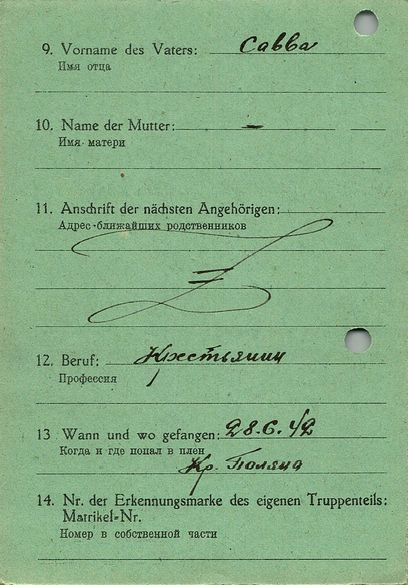 9. Vorname des Vaters: Савва
Имя отца
10. Name der Mutter: –
Имя матери
11. Anschrift der nächsten Angehörigen:
Адрес ближайших родственников
12. Beruf: Крестьянин
Профессия
13 Wann und wo gefangen: 28.6.42
Когда и где попал в плен
Кр. Поляна
14. Nr. der Erkennungsmarke des eigenen Truppenteils:
Matrikel-Nr.
Номер в собственной части